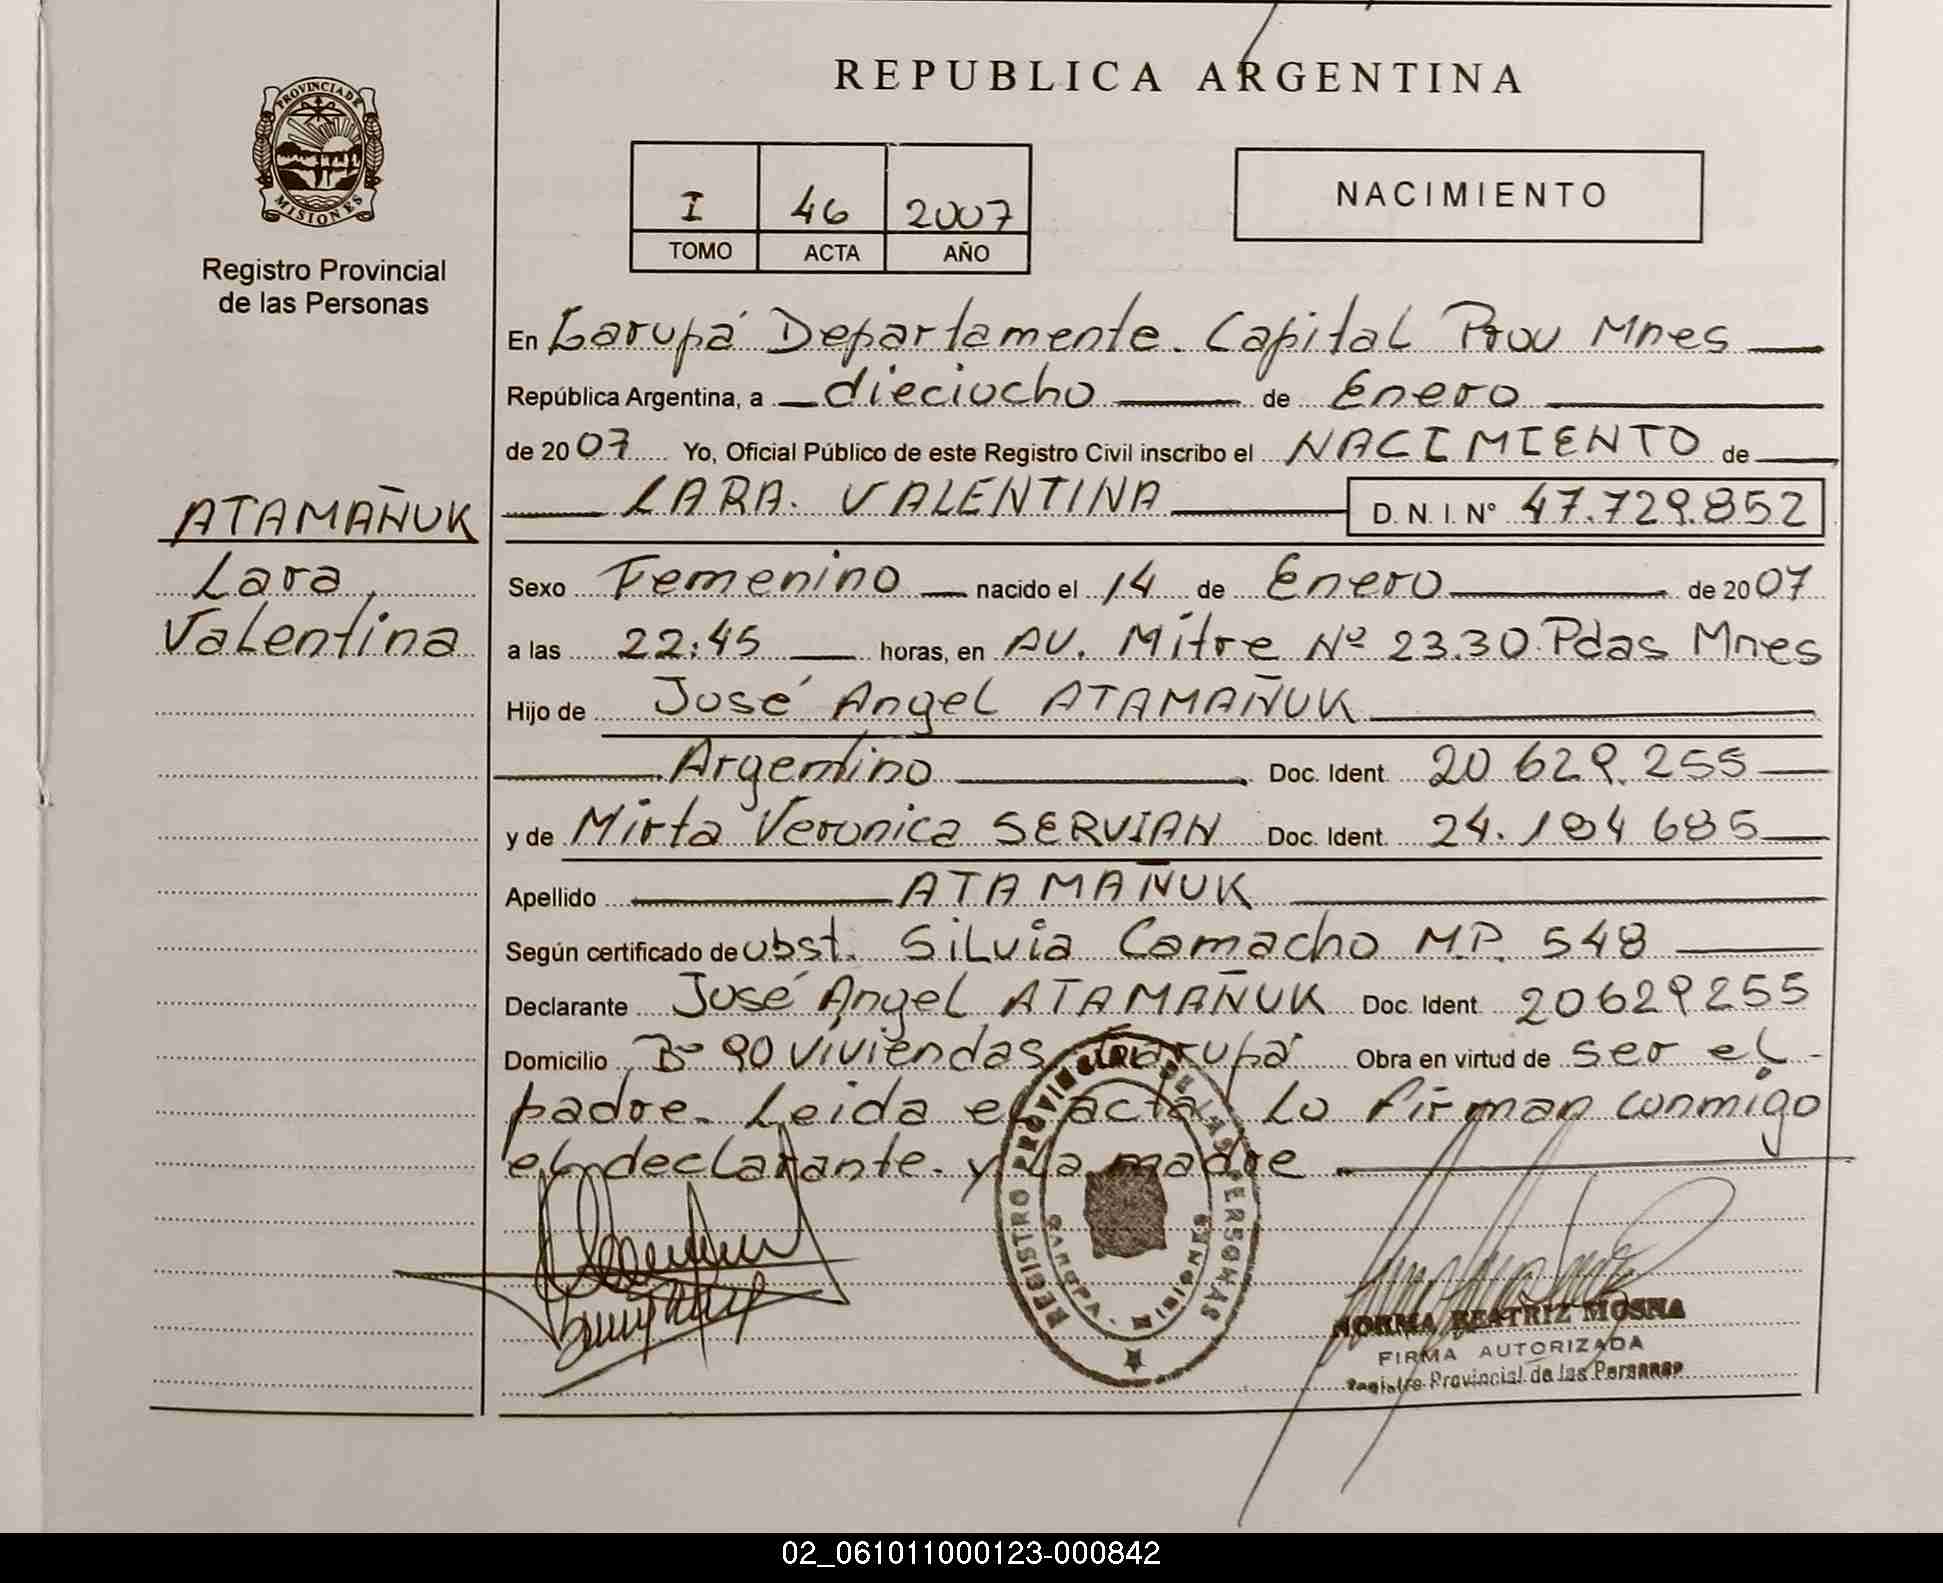 REPUBLICA ARGENTINA
PROVINCIA DE
MISIONES
Registro Provincial
de las Personas
I 46 2007
TOMO ACTA AÑO
NACIMIENTO
En Garupá Departamente. Capital Prov Mnes
República Argentina, a dieciocho de Enero
de 2007 Yo, Oficial Público de este Registro Civil inscribo el NACIMIENTO de
LARA. VALENTINA D. N. I. N° 47.729.852
ATAMAÑUK
Lara
Valentina
Sexo Femenino nacido el 14 de Enero de 2007
a las 22:45 horas, en AV. Mitre Nº 23.30 Pdas Mnes
Hijo de José Angel ATAMAÑUK
Argentino Doc. Ident. 20 629.255
y de Mirta Veronica SERVIAN Doc. Ident. 24.184 685
Apellido ATAMAÑUK
Según certificado de obst. Silvia Camacho M.P. 548
Declarante José Angel ATAMAÑUK Doc. Ident. 20629255
Domicilio Bº 90 viviendas Garupá Obra en virtud de ser el
padre. Leida el acta, lo firman conmigo
el declarante. y la madre
REGISTRO PROVINCIAL DE LAS PERSONAS
GARUPA - MISIONES
NORMA BEATRIZ MOSNA
FIRMA AUTORIZADA
Registro Provincial de las Personas
02_061011000123-000842